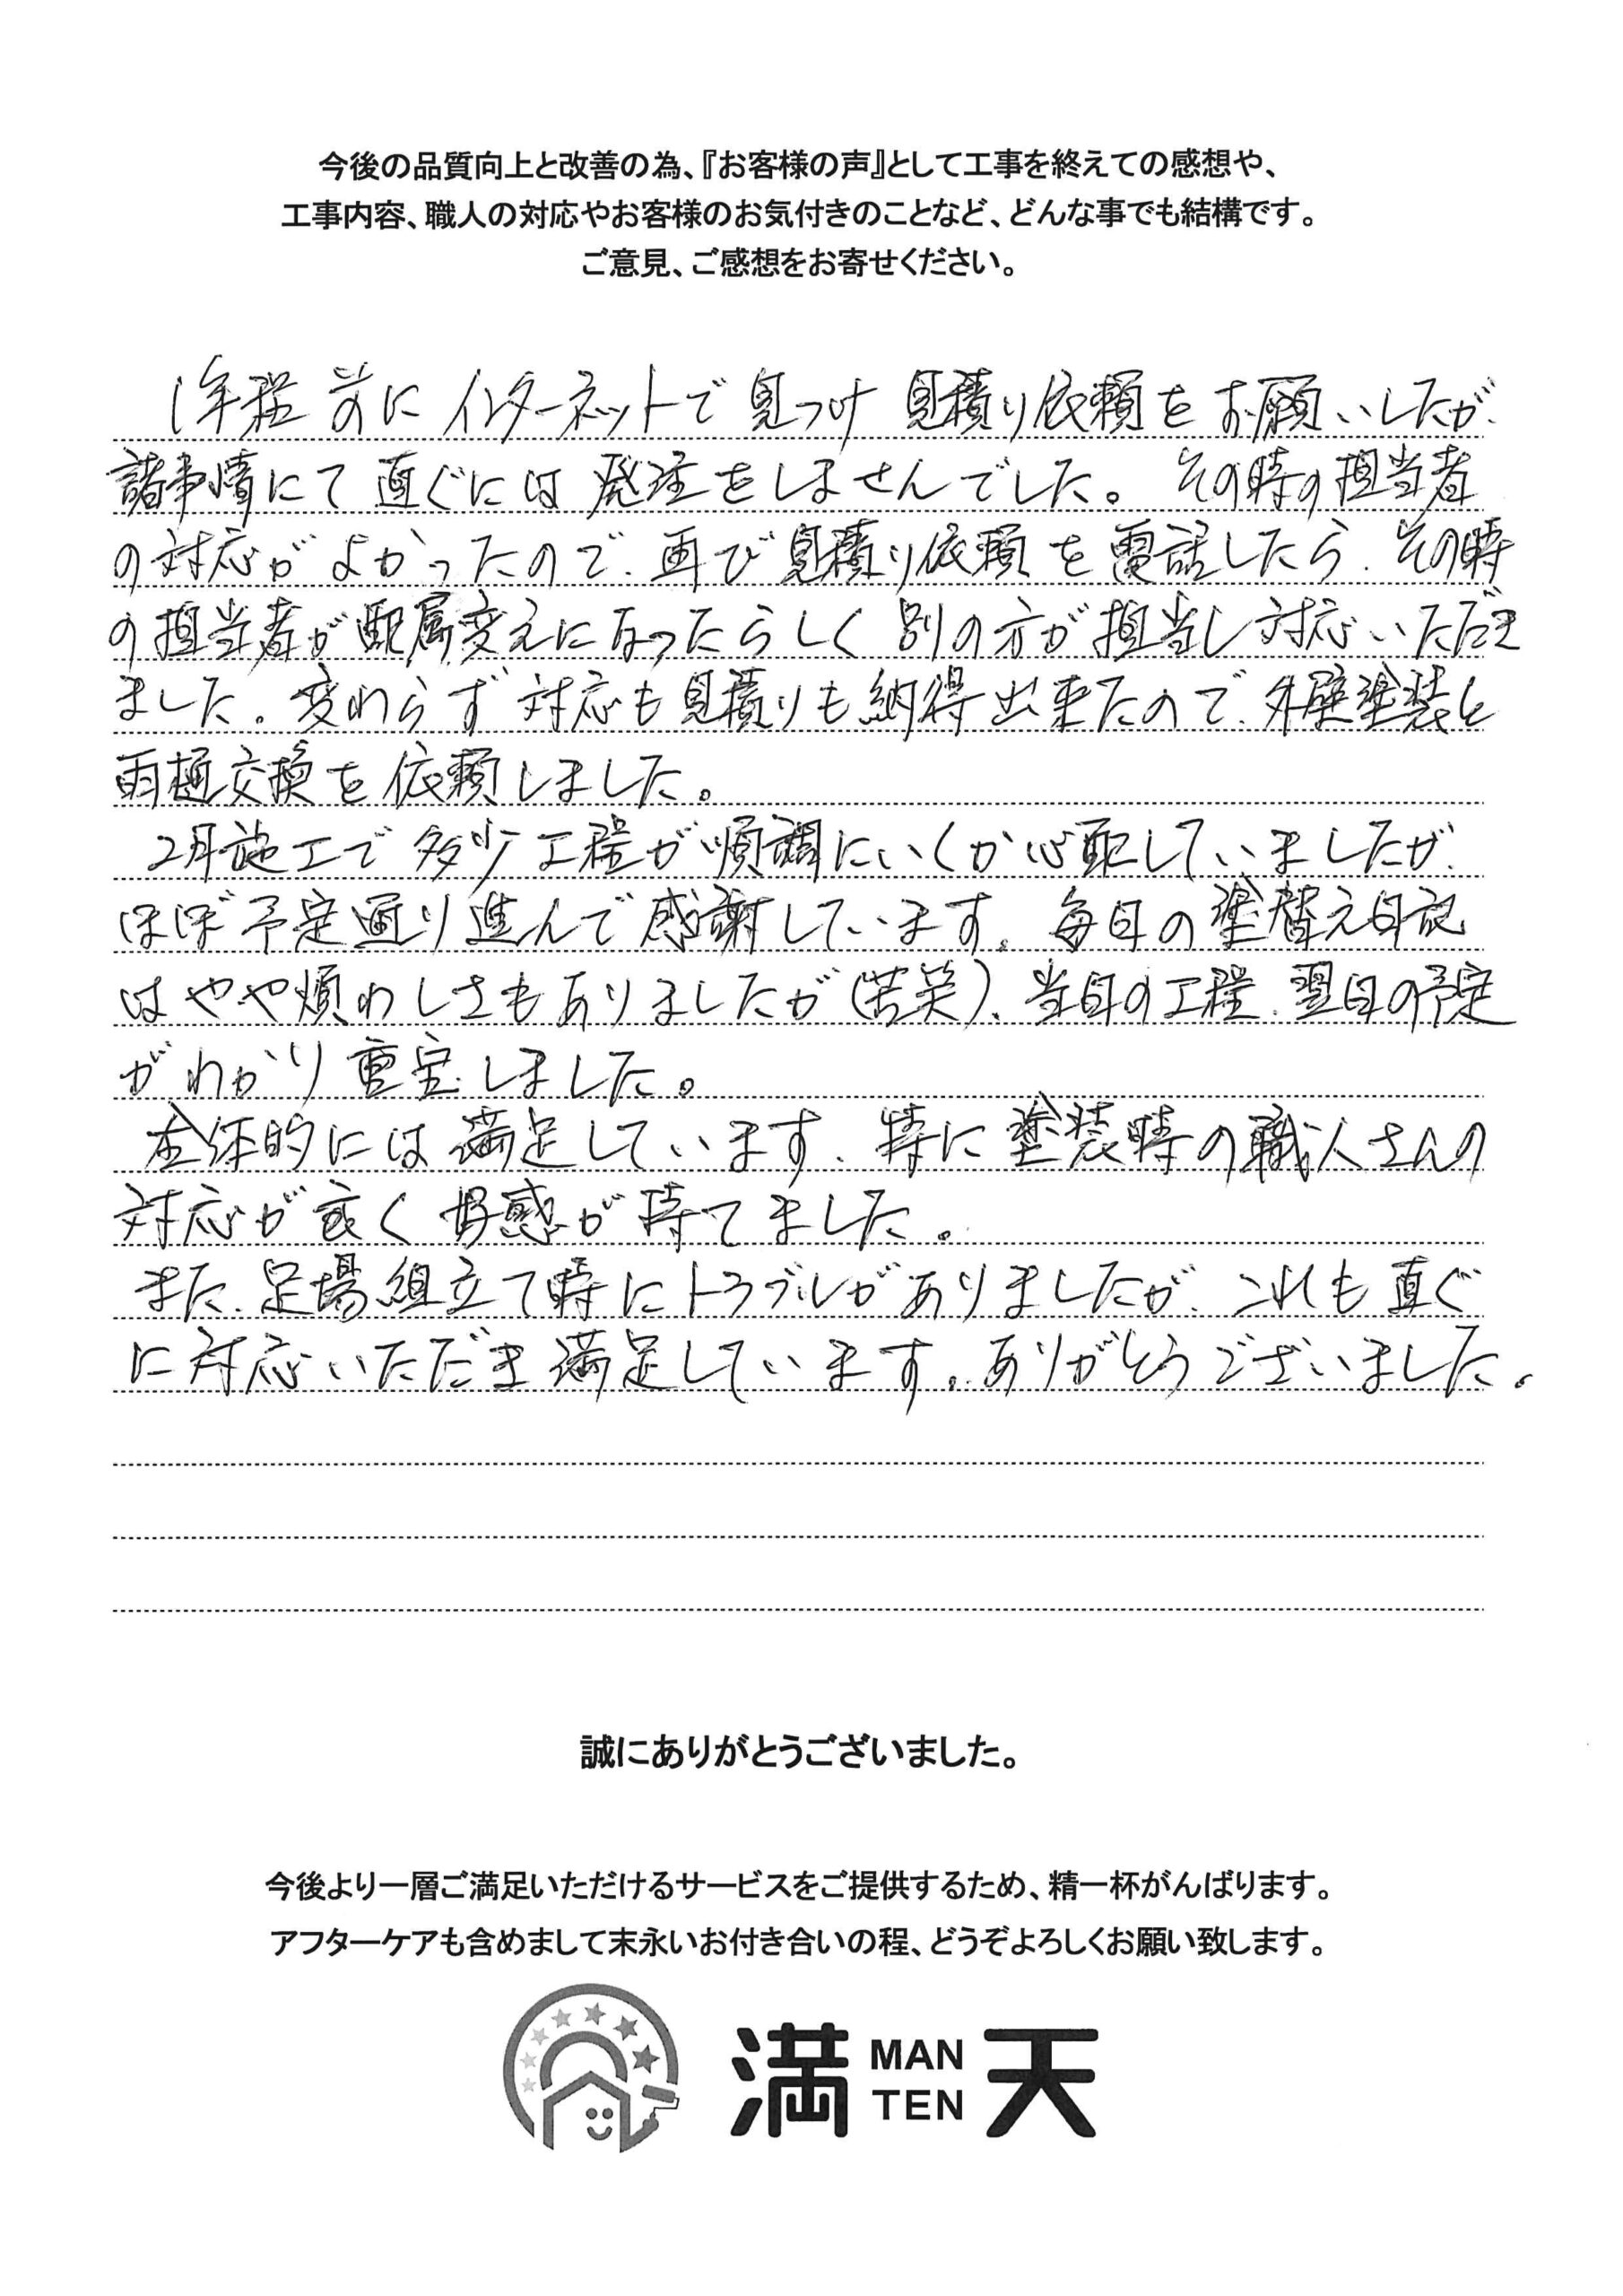 今後の品質向上と改善の為、『お客様の声』として工事を終えての感想や、
工事内容、職人の対応やお客様のお気付きのことなど、どんな事でも結構です。
ご意見、ご感想をお寄せください。
1年程前にインターネットで見つけ見積り依頼をお願いしたが、
諸事情にて直ぐには発注をしませんでした。その時の担当者
の対応がよかったので、再び見積り依頼を電話したら、その時
の担当者が配属変えになったらしく別の方が担当し対応いただき
ました。変わらず対応も見積りも納得出来たので、外壁塗装と
雨樋交換を依頼しました。
2月施工で多少工程が順調にいくか心配していましたが、
ほぼ予定通り進んで感謝しています。毎日の塗替え日記
はやや煩わしさもありましたが(苦笑)、当日の工程、翌日の予定
がわかり重宝しました。
全体的には満足しています、特に塗装時の職人さんの
対応が良く好感が持てました。
また、足場組立て時にトラブルがありましたが、これも直ぐ
に対応いただき満足しています。ありがとうございました。
誠にありがとうございました。
今後より一層ご満足いただけるサービスをご提供するため、精一杯がんばります。
アフターケアも含めまして末永いお付き合いの程、どうぞよろしくお願い致します。
満 MAN TEN 天